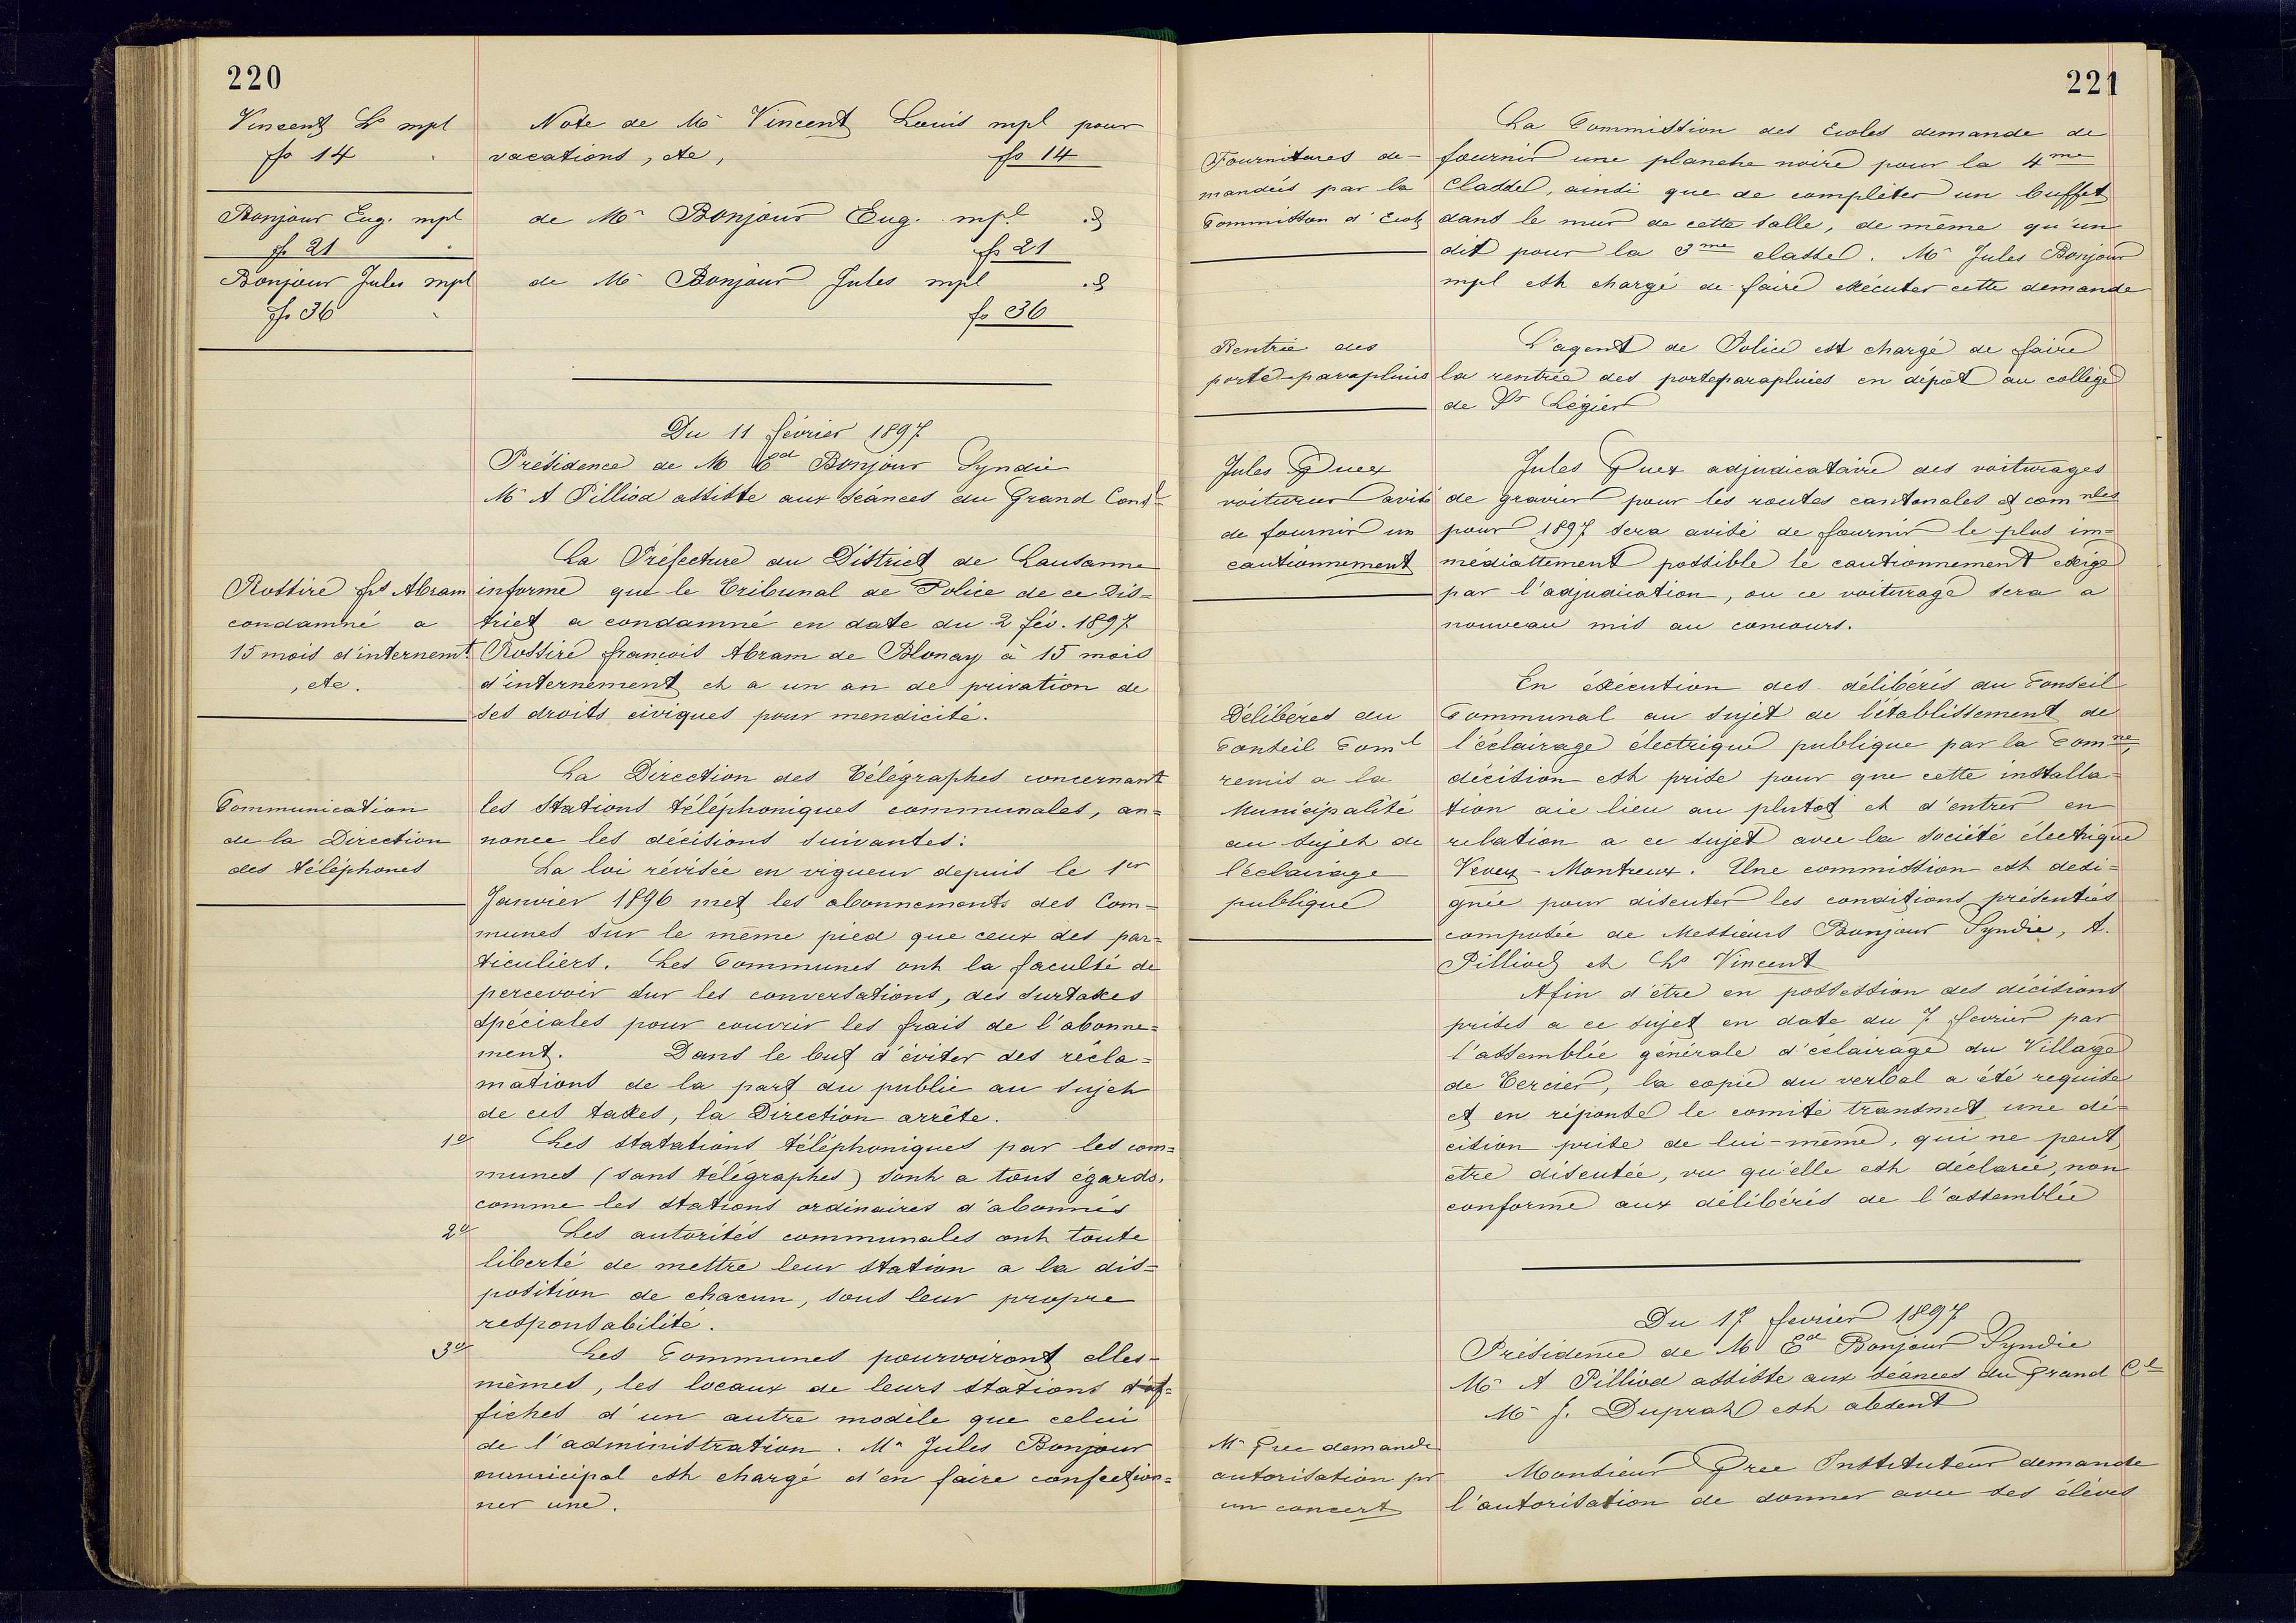 220
Vincent Ls mpl
fr 14
Note de Mr Vincent Louis mpl pour
vacations, etc, fr 14
Bonjour Eug. mpl
fr 21
de Mr Bonjour Eug. mpl
fr 21
Bonjour Jules mpl
fr 36
de Mr Bonjour Jules mpl
fr 36
Du 11 février 1897
Présidence de M Ed Bonjour Syndic
Mr A Pilliod assiste aux séances du Grand Consl
Rossire fs Abram
condamné a
15 mois d'internemt
, etc.
La Préfecture du District de Lausanne
informe que le Tribunal de Police de ce Dis=
trict a condamné en date du 2 fév. 1897
Rossire françois Abram de Blonay à 15 mois
d'internement et a un an de privation de
ses droits civiques pour mendicité.
Communication
de la Direction
des téléphones
La Direction des Télégraphes concernant
les stations téléphoniques communales, an=
nonce les décisions suivantes:
La loi révisée en vigueur depuis le 1er
Janvier 1896 met les abonnements des Com=
munes sur le même pied que ceux des par=
ticuliers. Les Communes ont la faculté de
percevoir sur les conversations, des surtaxes
spéciales pour couvrir les frais de l'abonne=
ment. Dans le but d'éviter des récla=
mations de la part du public au sujet
de ces taxes, la Direction arrête.
1o Les statations téléphoniques par les com=
munes (sans télégraphes) sont a tous égards,
comme les stations ordinaires d'abonnés
2o Les autorités communales ont toute
liberté de mettre leur station a la dis=
position de chacun, sous leur propre
responsabilité.
3o Les Communes pourvoiront elles-
mêmes, les locaux de leurs stations d'af=
fiches d'un autre modèle que celui
de l'administration. Mr Jules Bonjour
municipal est chargé d'en faire confection=
ner une.
221
Fournitures de-
mandées par la
Commission d'Ecole
La Commission des Ecoles demande de
fournir une planche noire pour la 4me
Classe, ainsi que de compléter un buffet
dans le mur de cette salle, de même qu'un
dit pour la 3me classe. Mr Jules Bonjour
mpl est chargé de faire exécuter cette demande
Rentrée des
porte-parapluies
L'agent de Police est chargé de faire
la rentrée des porteparapluies en dépôt au collège
de St Légier
Jules Quex
voiturier avisé
de fournir un
cautionnement
Jules Quex adjudicataire des voiturages
de gravier pour les routes cantonales et comnles
pour 1897 sera avisé de fournir le plus im=
médiattement possible le cautionnement exigé
par l'adjudication, ou ce voiturage sera a
nouveau mis au concours.
Délibérés du
Conseil Coml
remis a la
Municipalité
au sujet de
l'éclairage
publique
En éxécution des délibérés du Conseil
Communal au sujet de l'établissement de
l'éclairage électrique publique par la Comne,
décision est prise pour que cette installa=
tion aie lieu au plutôt et d'entrer en
relation a ce sujet avec la société électrique
Vevey-Montreux. Une commission est dési=
gnée pour discuter les conditions présentées
composée de Messieurs Bonjour Syndic, A.
Pilliod et Ls Vincent
Afin d'être en possession des décisions
prises a ce sujet en date du 7 fevrier par
l'assemblée générale d'éclairage du Village
de Tercier, la copie du verbal a été requise
et en réponse le comité transmet une dé=
cision prise de lui-même, qui ne peut
être discutée, vu qu'elle est déclarée, non
conforme aux délibérés de l'assemblée
Du 17 fevrier 1897
Présidence de M Ed Bonjour Syndic
Mr A Pilliod assiste aux séances du Grand Cl
Mr f. Dupraz est absent
Mr Gree demande
autorisation pr
un concert
Monsieur Gree Instituteur demande
l'autorisation de donner avec ses élèves